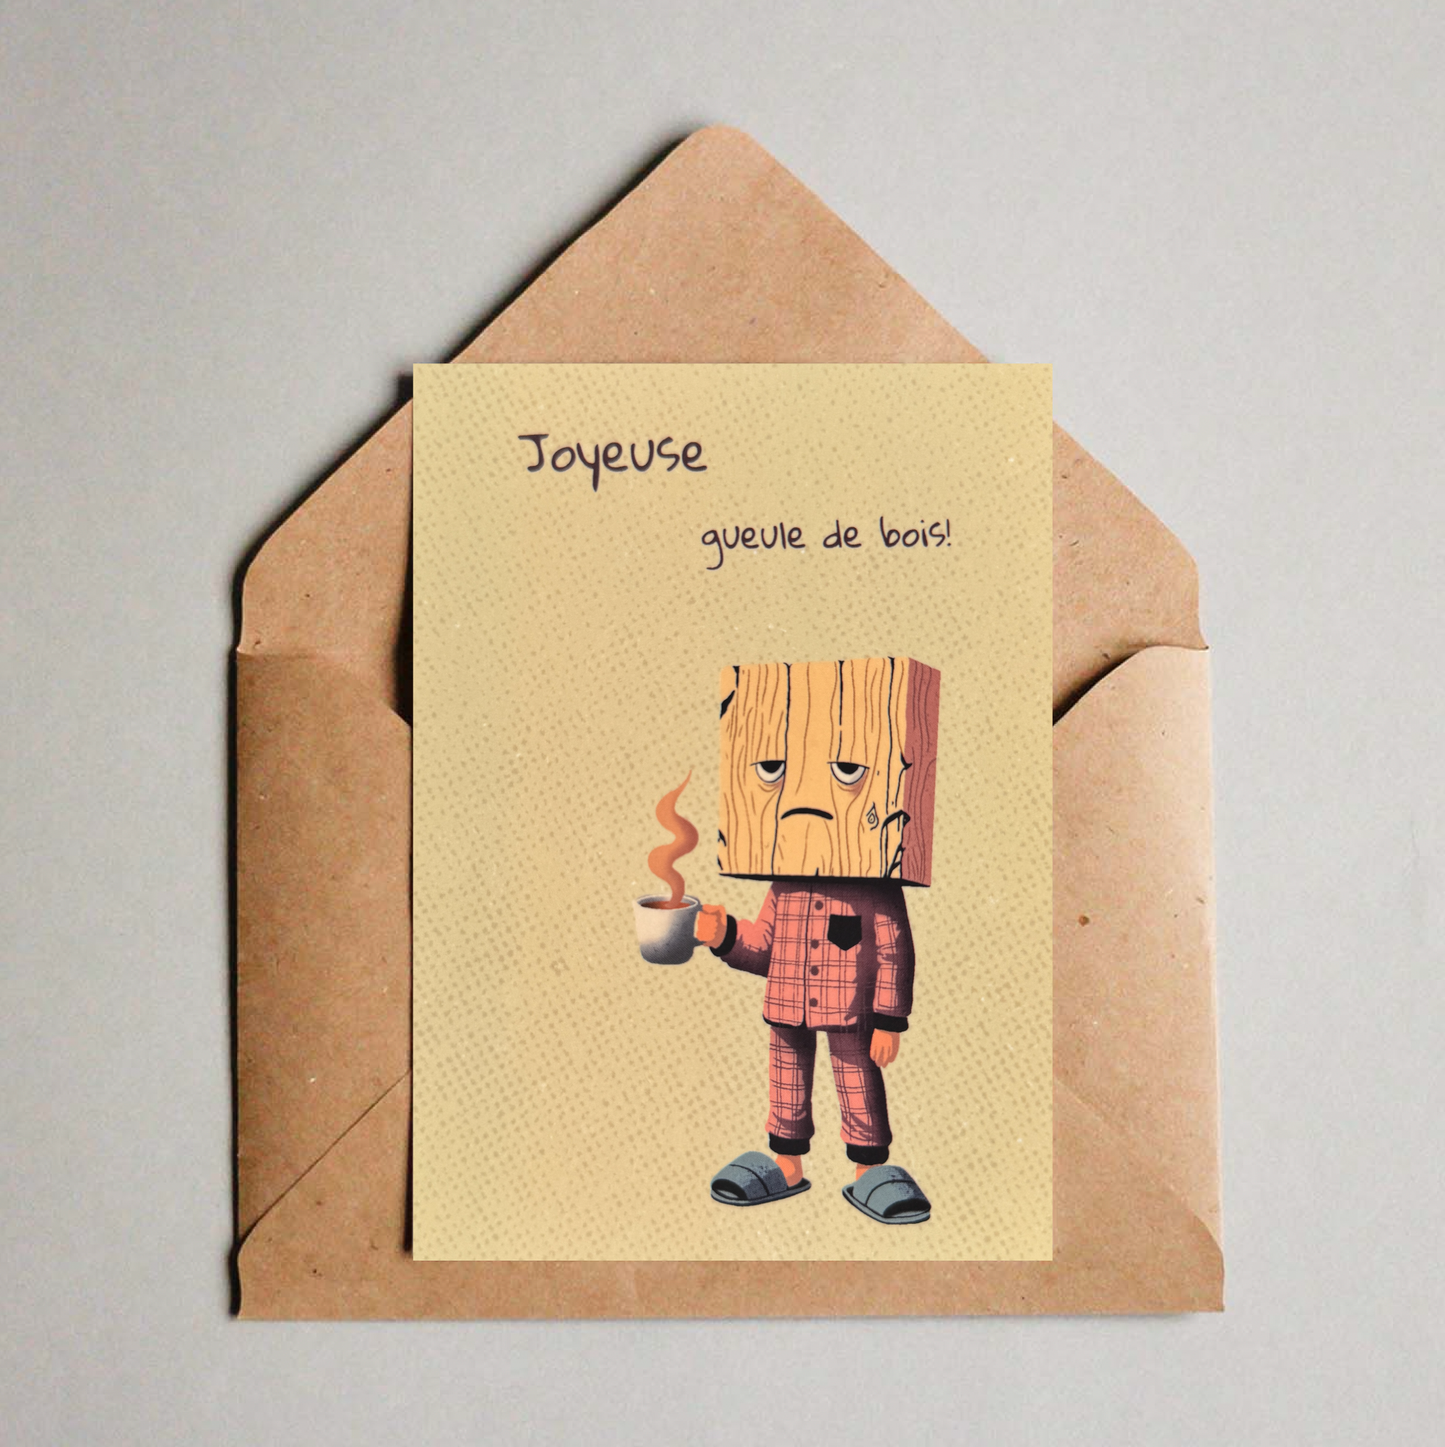 Joyeuse
gueule de bois!